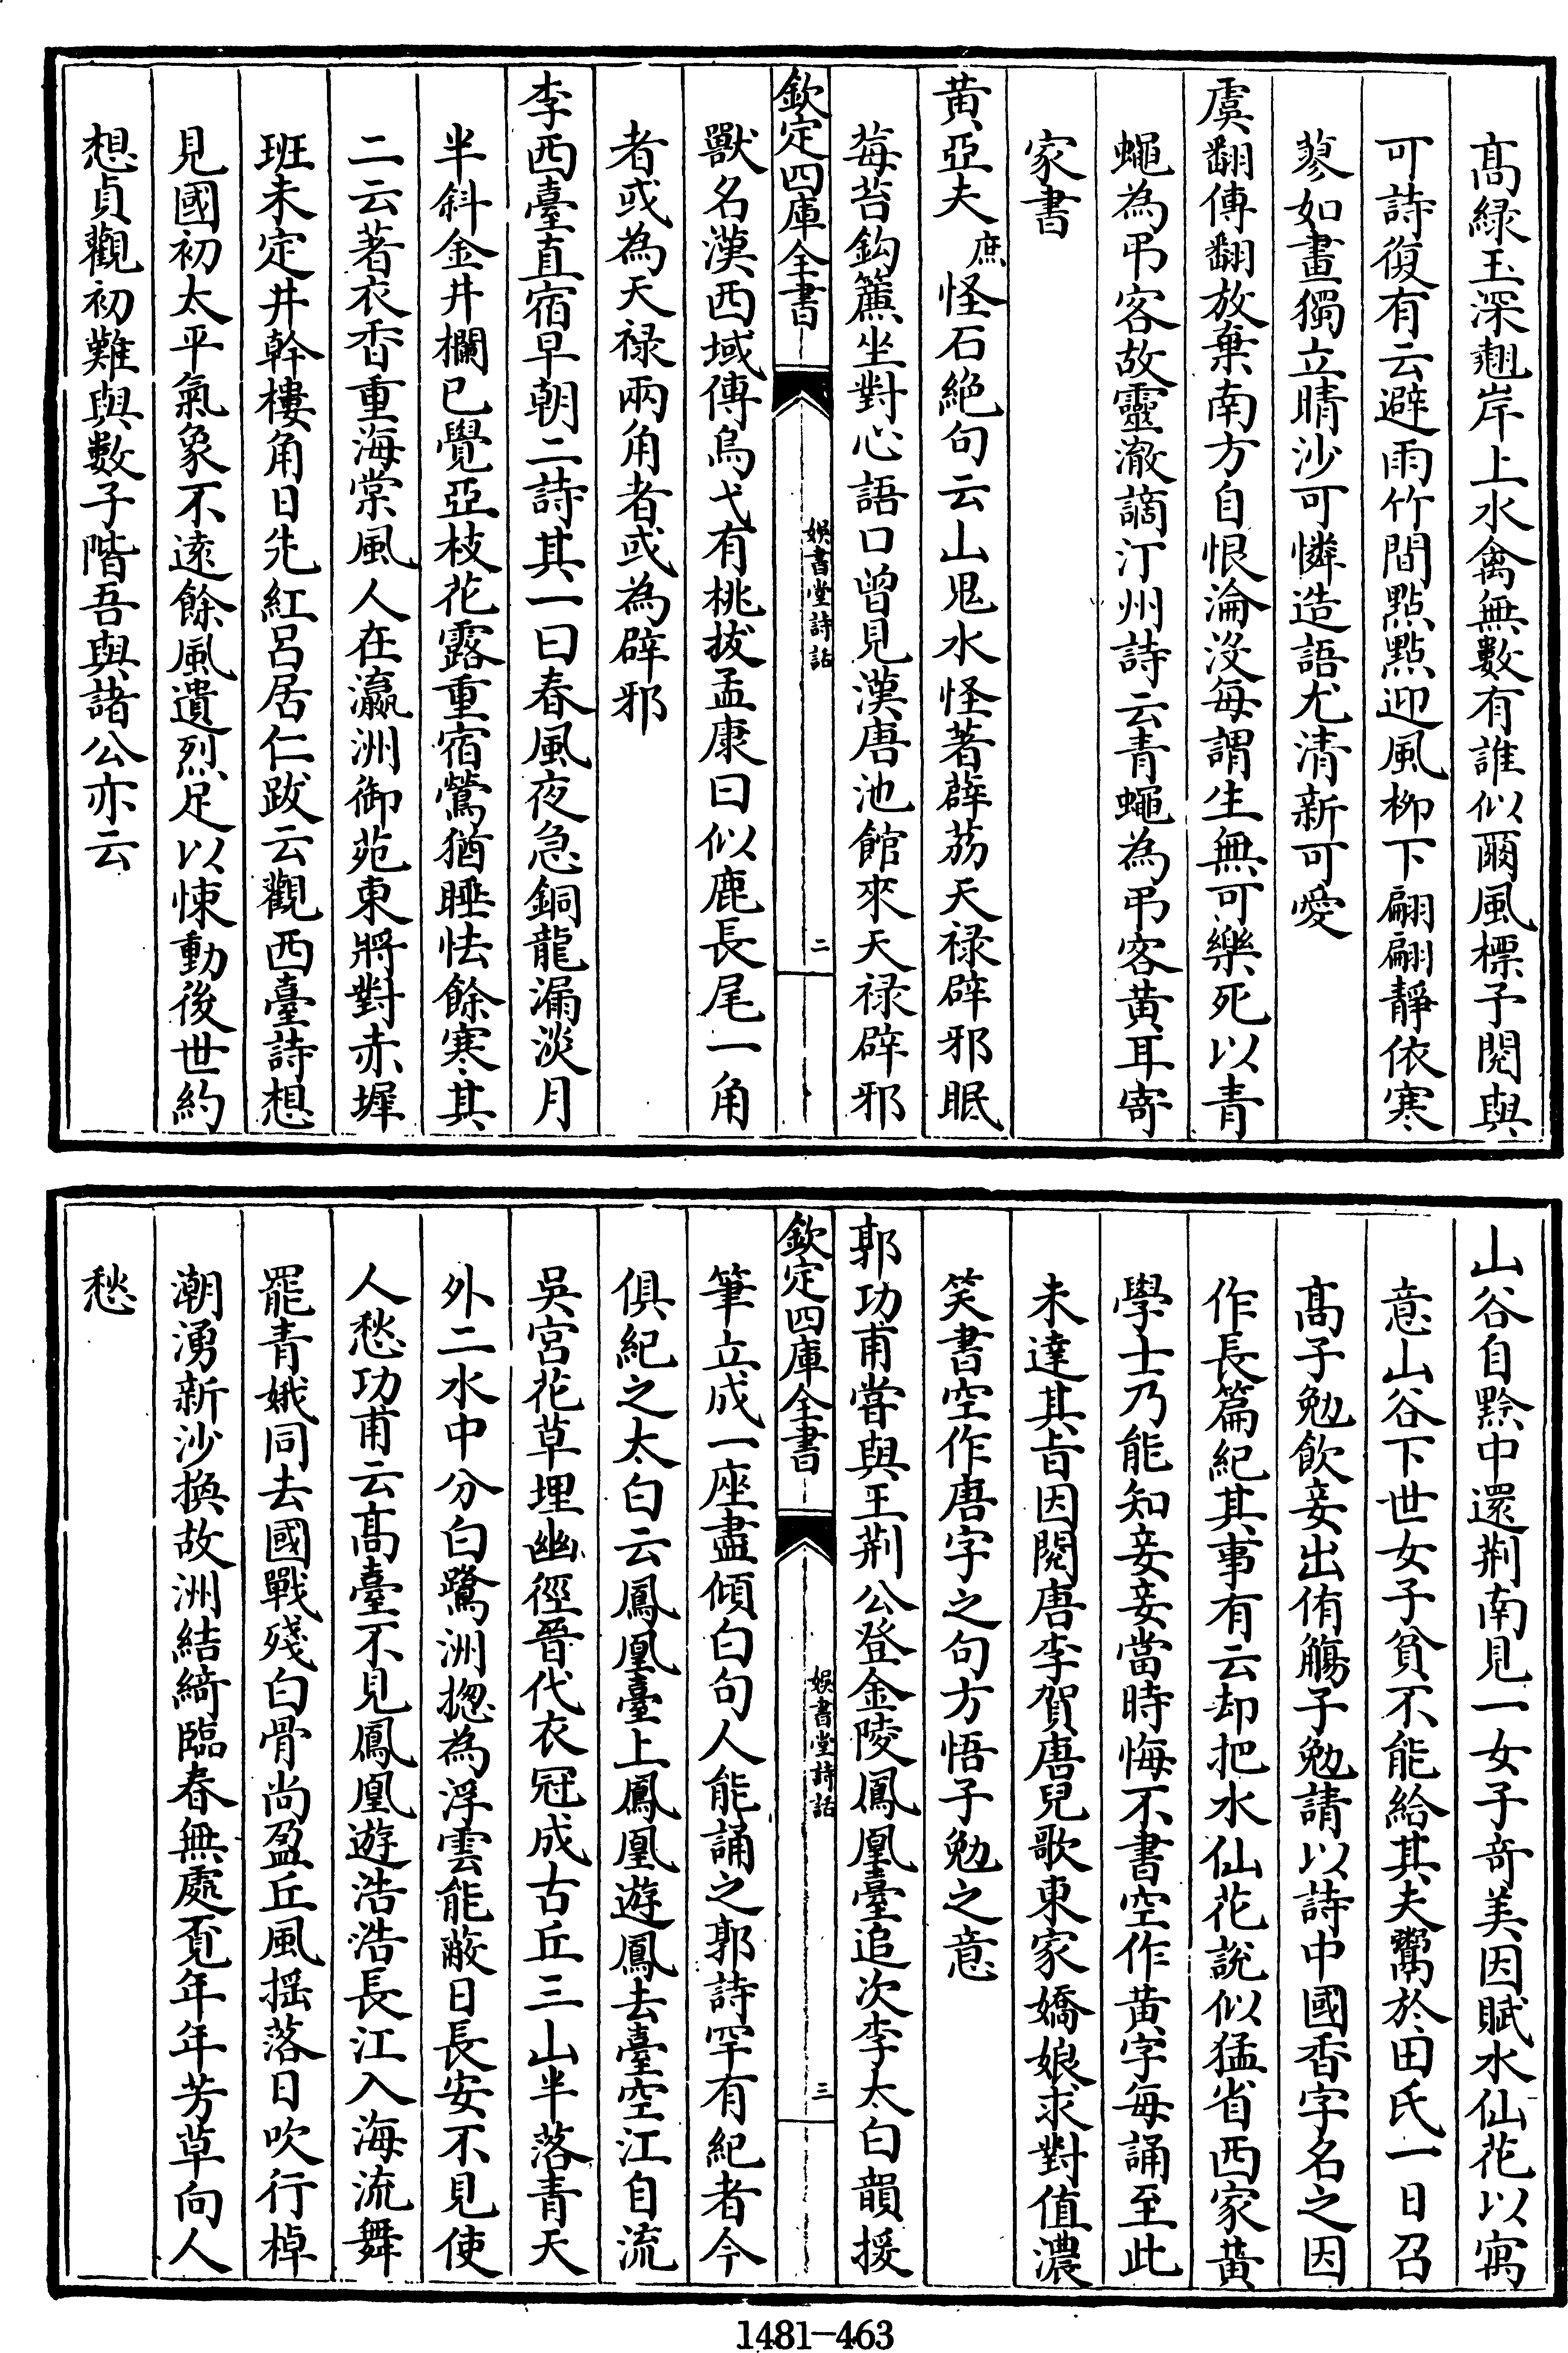 髙緑玉深翹岸上水禽無數有誰似爾風標予閱與
可詩復有云避雨竹間點點迎風栁下翩翩靜依寒
蓼如畫獨立晴沙可憐造語尤清新可愛
虞翻傳翻放棄南方自恨淪沒每謂生無可樂死以青
蠅為弔客故靈澈謫汀州詩云青蠅為弔客黄耳寄
家書
黄亞夫庶怪石絶句云山鬼水怪著薜荔天禄辟邪眠
莓苔鈎簾坐對心語口曾見漢唐池館來天禄辟邪
欽定四庫全書
娱書堂詩話
二
獸名漢西域傳烏弋有桃拔孟康曰似鹿長尾一角
者或為天禄兩角者或為辟邪
李西臺直宿早朝二詩其一曰春風夜急銅龍漏淡月
半斜金井欄已覺亞枝花露重宿鶯猶睡怯餘寒其
二云著衣香重海棠風人在瀛洲御苑東將對赤墀
班未定井幹樓角日先紅呂居仁跋云觀西臺詩想
見國初太平氣象不逺餘風遺烈足以悚動後世約
想貞觀初難與數子階吾與諸公亦云
山谷自黔中還荆南見一女子竒美因賦水仙花以寓
意山谷下世女子貧不能給其夫鬻於田氏一日召
髙子勉飲妾出侑觴子勉請以詩中國香字名之因
作長篇紀其事有云却把水仙花說似猛省西家黄
學士乃能知妾妾當時悔不書空作黄字每誦至此
未達其旨因閱唐李賀唐兒歌東家嬌娘求對值濃
笑書空作唐字之句方悟子勉之意
郭功甫嘗與王荆公登金陵鳳凰臺追次李太白韻援
欽定四庫全書
娱書堂詩話
三
筆立成一座盡傾白句人能誦之郭詩罕有紀者今
俱紀之太白云鳳凰臺上鳳凰遊鳳去臺空江自流
吳宮花草埋幽徑晉代衣冠成古丘三山半落青天
外二水中分白鷺洲揔為浮雲能蔽日長安不見使
人愁功甫云髙臺不見鳳凰遊浩浩長江入海流舞
罷青娥同去國戰殘白骨尚盈丘風摇落日吹行棹
潮湧新沙換故洲結綺臨春無處覔年年芳草向人
愁
1481-463